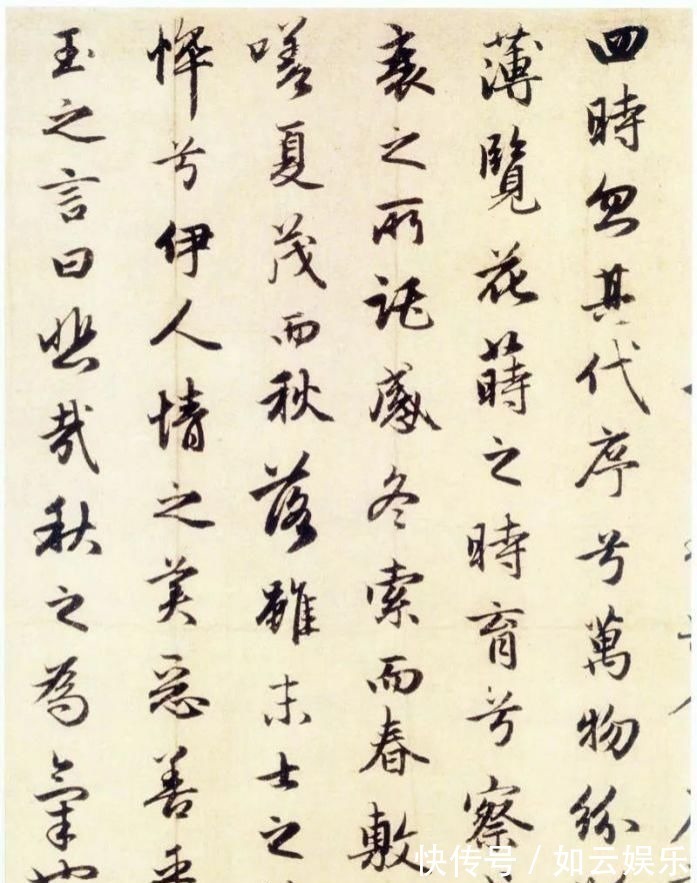 四時忽其代序兮萬物紛
薄覽花蒔之時育兮察
衰之所託感冬索而春敷
嗟夏茂而秋落雖末士之
悴兮伊人情之美惡善乎
玉之言曰悲哉秋之為氣也
快传号 / 如云娱乐